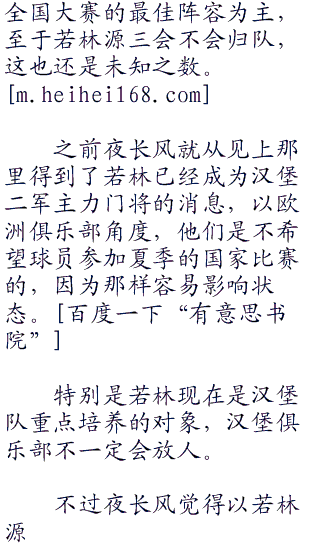 全国大赛的最佳阵容为主，
至于若林源三会不会归队，
这也还是未知之数。
[m.heihei168.com]
之前夜长风就从见上那
里得到了若林已经成为汉堡
二军主力门将的消息，以欧
洲俱乐部角度，他们是不希
望球员参加夏季的国家比赛
的，因为那样容易影响状
态。[百度一下“有意思书
院”]
特别是若林现在是汉堡
队重点培养的对象，汉堡俱
乐部不一定会放人。
不过夜长风觉得以若林
源